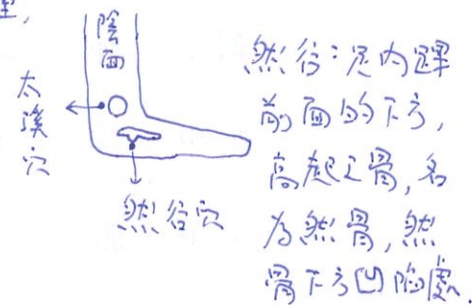 里,
陰面
太谿穴
然谷穴
然谷:足內踝
前面的下方,
高起之骨,名
為然骨,然
骨下方凹陷處.